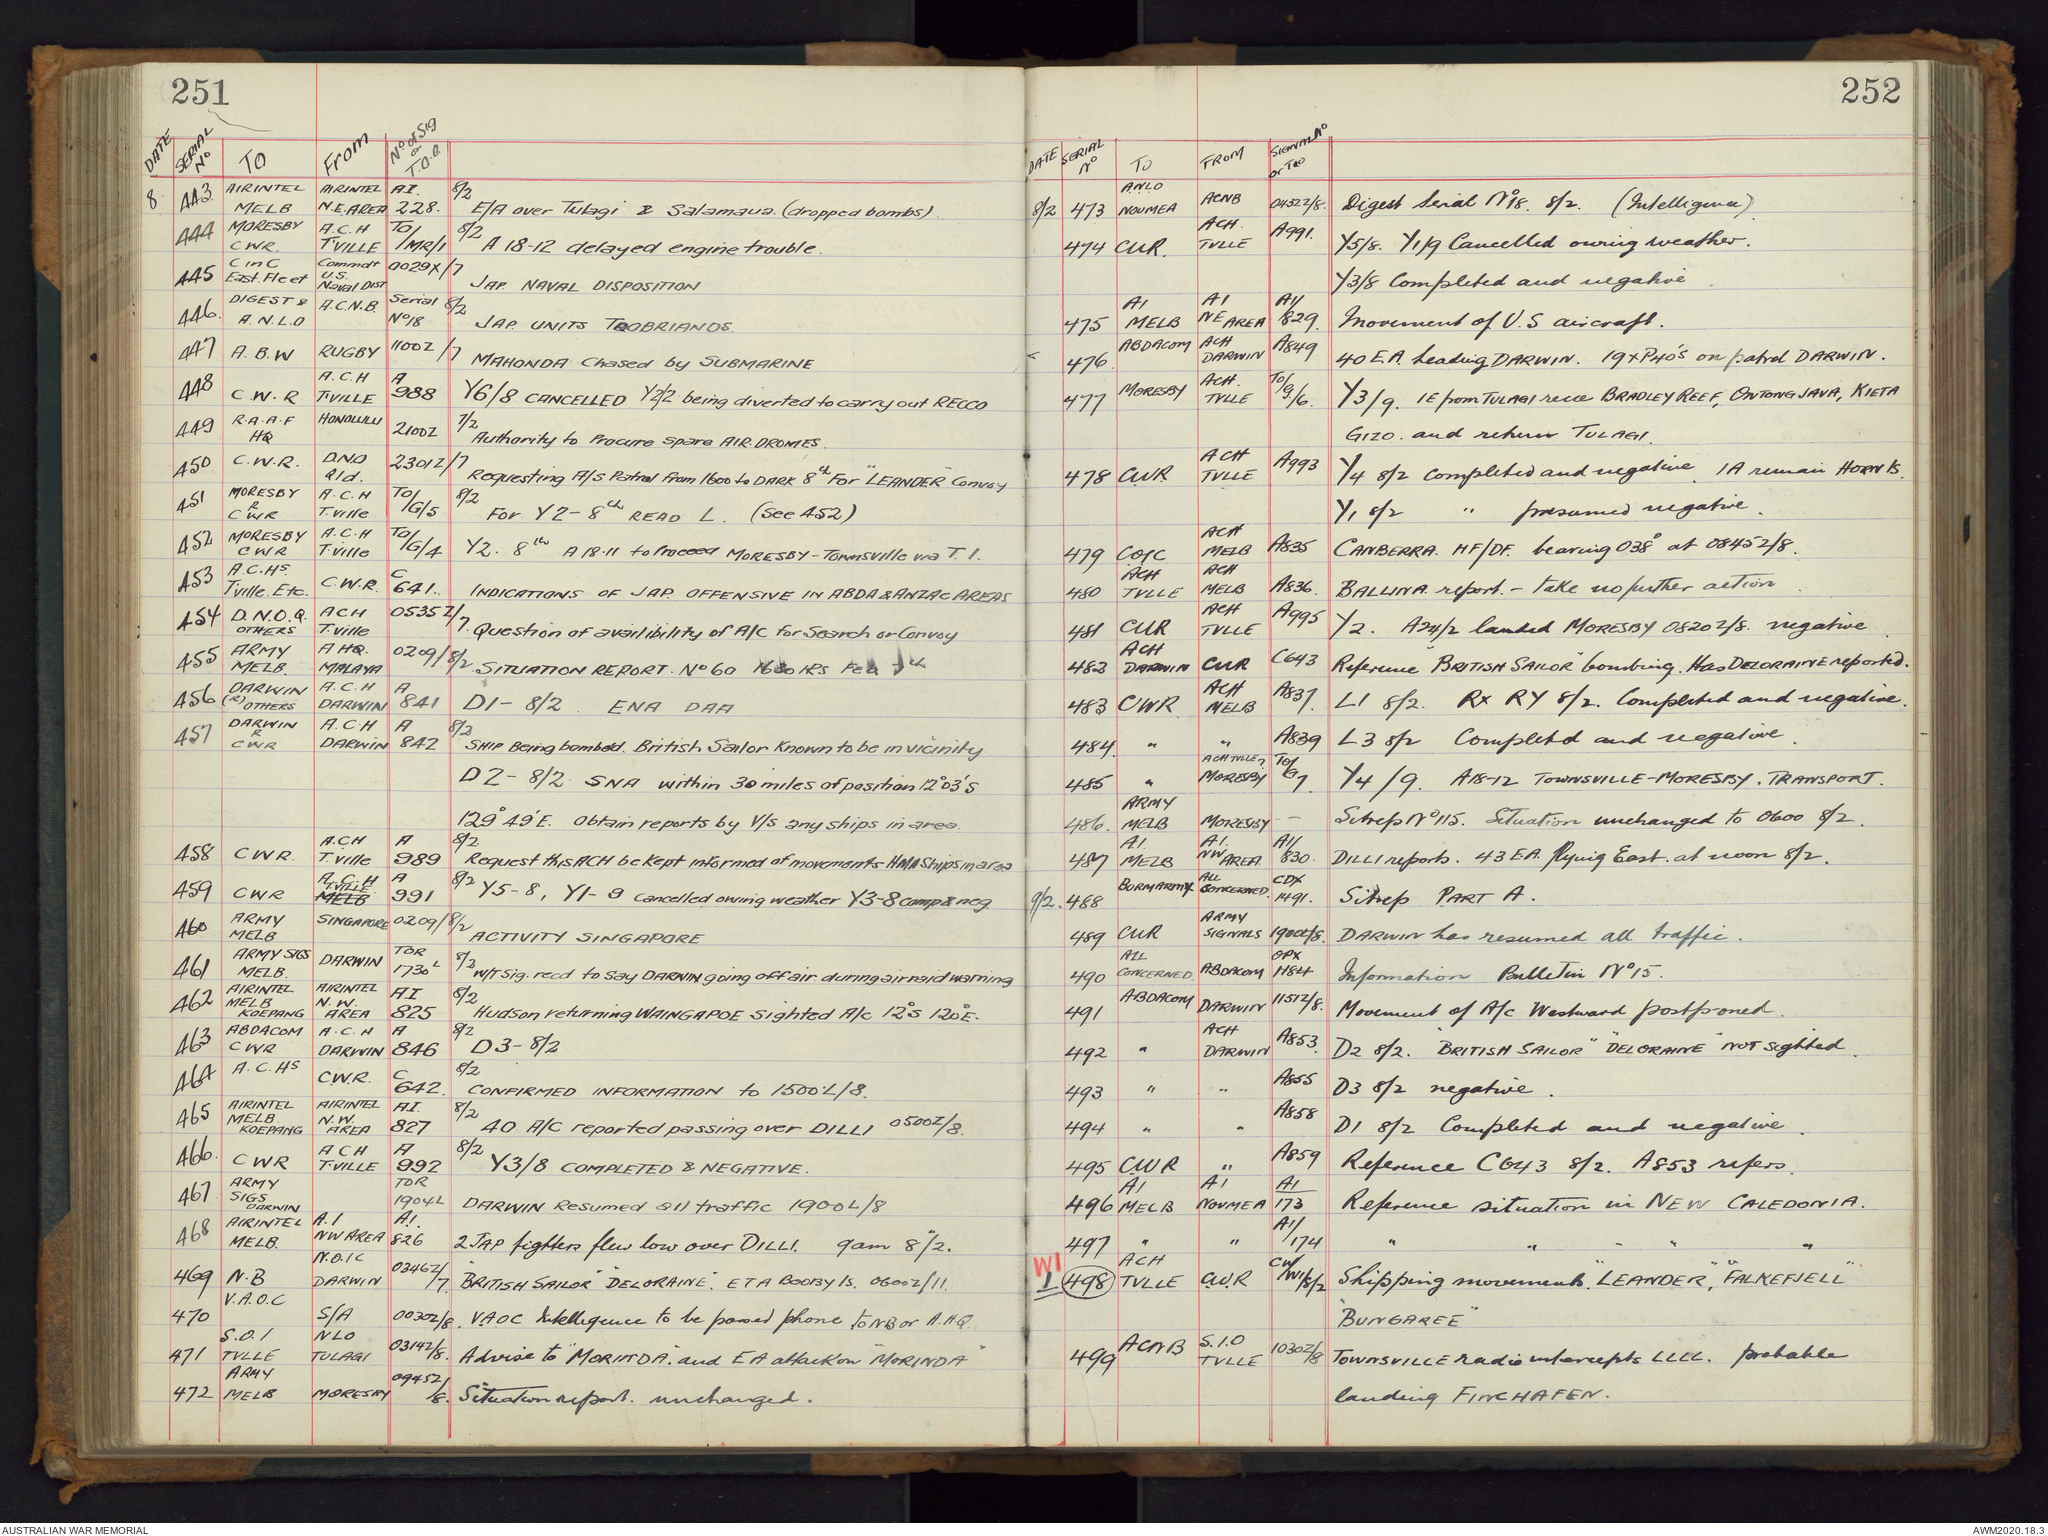 251
DATE SERIAL No TO From No of Sig or T.O.O
8. 443. AIRINTEL MELB AIRINTEL N.E.AREA AI. 228. 8/2 E/A over Tulagi & Salamaua. (dropped bombs).
444 MORESBY CWR. A.C.H T'VILLE To/1MR/1 8/2 A 18-12 delayed engine trouble.
445 C in C East. Fleet Commdt U.S. Naval Dist 0029X/7 JAP. NAVAL DISPOSITION
446. DIGEST & A.N.L.O A.C.N.B. Serial No 18 8/2 JAP. UNITS TROBRIANDS.
447 A.B.W RUGBY 1100Z/7 MAHONDA Chased by SUBMARINE
448 C.W.R A.C.H T.VILLE A 988 Y6/8 CANCELLED Y2/2 being diverted to carry out RECCO
449 R.A.A.F HQ HONOLULU 2100Z 7/2 Authority to Procure Spare AIR.DROMES.
450 C.W.R. D.N.O Q'ld. 2301Z/7 Requesting A/S Patrol from 1600 to DARK 8th For "LEANDER" Convoy
451 MORESBY R CWR A.C.H T.ville To/G/5 8/2 For Y2-8th READ L. (See 452)
452 MORESBY CWR A.C.H T.ville To/G/4 Y2. 8th A 18.11 to Proceed MORESBY-Townsville via T.I.
453 A.C.Hs. T'ville. Etc. C.W.R. C 641. INDICATIONS OF JAP. OFFENSIVE IN ABDA & ANZAC AREAS
454 D.N.O.Q. OTHERS ACH T.ville 0535Z/7. Question of availibility of A/C for Search or Convoy
455 ARMY MELB. A HQ. MALAYA 0209/8/2. SITUATION REPORT. No 60
456 DARWIN (R) OTHERS A.C.H DARWIN A 841 D1- 8/2. ENA DAA
457 DARWIN R CWR A.C.H DARWIN A 842 8/2 SHIP Being bombed. British Sailor Known to be in vicinity
D2- 8/2 SNA within 30 miles of position 12°03'S
129°49'E. Obtain reports by V/S any ships in area.
458 CWR. A.CH T.ville A 989 8/2 Request this ACH be kept informed of movements HMA Ships in area
459 CWR A.C.H T.VILLE MELB A 991 8/2 Y5-8, Y1-9 Cancelled owing weather Y3-8 comp & neg.
460 ARMY MELB SINGAPORE 0209/8/2 ACTIVITY SINGAPORE
461 ARMY SIGS MELB. DARWIN TOR 1730L 8/2 W/T Sig. recd to Say DARWIN going off air during air raid warning
462 AIRINTEL MELB KOEPANG AIRINTEL N.W. AREA AI 825 8/2 Hudson returning WAINGAPOE Sighted A/c 12°S 120°E.
463 ABDACOM CWR A.C.H DARWIN A 846 8/2 D3- 8/2
464 A.C.Hs CW.R. C 642. 8/2 CONFIRMED INFORMATION to 1500L/8.
465 AIRINTEL MELB. KOEPANG AIRINTEL N.W. AREA AI. 827 8/2 40 A/C reported passing over DILLI 0500Z/8.
466. CWR ACH T.VILLE A 992 8/2 Y3/8 COMPLETED & NEGATIVE.
467 ARMY SIGS DARWIN TOR 1904L DARWIN Resumed all traffic 1900L/8
468 AIRINTEL MELB. A.I NW AREA A.I. 826 2 JAP fighters flew low over DILLI. 9am 8/2.
469 N.B N.O.I.C DARWIN 0346Z/7. "BRITISH SAILOR" "DELORAINE". ETA BOOBY Is. 0600Z/11.
470 V.A.O.C S/A 0030Z/8. VAOC Intelligence to be passed phone to NB or A.HQ.
471 S.O.I TVLLE NLO TULAGI 0314Z/8. Advise to "MORINDA". and EA attack on "MORINDA"
472 ARMY MELB MORESBY 0945Z/8. Situation report. unchanged.
252
DATE SERIAL No TO FROM SIGNAL No or TOO
8/2 473 ANLO NOUMEA ACNB 0432Z/8. Digest Serial No 18. 8/2. (Intelligence)
474 CWR. ACH. TVLLE A991. Y5/8. Y1/9 Cancelled owing weather.
Y3/8 Completed and negative
475 AI MELB AI NE AREA AI/829. Movement of U.S aircraft.
476 ABDACOM ACH DARWIN A849 40 E.A. heading DARWIN. 19 x P40's on patrol DARWIN.
477 MORESBY ACH. TVLLE To/G/6. Y3/9. 1E from TULAGI recce BRADLEY REEF, ONTONG JAVA, KIETA
GIZO. and return TULAGI.
478 CWR ACH TVLLE A993 Y/4 8/2 Completed and negative. 1A remain HORN Is.
Y1 8/2 " presumed negative.
479 COIC ACH MELB A835 CANBERRA. HF/DF. bearing 038° at 0845Z/8.
480 ACH TVLLE ACH MELB A836. BALLINA report. - take no further action
481 CWR ACH TVLLE A995 Y2. A24/2 landed MORESBY 0820Z/8. negative
482 ACH DARWIN CWR C643 Reference "BRITISH SAILOR" bombing. Has DELORAINE reported.
483 CWR ACH MELB A837. L1 8/2. RX RY 8/2. Completed and negative.
484. " " A839 L3 8/2 Completed and negative.
485 " ACH TVLLE? MORESBY To/G7 Y4/9. A18-12 TOWNSVILLE-MORESBY. TRANSPORT.
486. ARMY MELB MORESBY - - Sitrep No 115. Situation unchanged to 0600 8/2.
487 A.I. MELB A.I. NW AREA AI/830. DILLI reports. 43 EA. flying East. at noon 8/2.
9/2. 488 BURMARMY ALL CONCERNED. CDX 1491. Sitrep PART A.
489 CWR ARMY SIGNALS 1900L/8. DARWIN has resumed all traffic.
490 ALL CONCERNED. ABDACOM OPX 1184 Information Bulletin No 15.
491 ABDACOM DARWIN 1151Z/8. Movement of A/c Westward postponed.
492 " ACH DARWIN A853. D2 8/2. "BRITISH SAILOR" "DELORAINE" NOT sighted.
493 " " A855 D3 8/2 negative.
494 " " A858 D1 8/2 Completed and negative.
495 CWR " A859 Reference C643 8/2. A853 refers.
496 AI MELB AI NOUMEA AI 173 Reference situation in NEW CALEDONIA.
497 " " AI/174 " " " "
W1 1 498 ACH TVLLE CW.R CW/W1/8/2 Shipping movements. "LEANDER", "FALKEFJELL"
"BUNGAREE"
499 ACNB S.I.O TVLLE 1030Z/8 TOWNSVILLE radio intercepts LLLL. probable
landing FINCHAFEN.
AUSTRALIAN WAR MEMORIAL
AWM2020.18.3